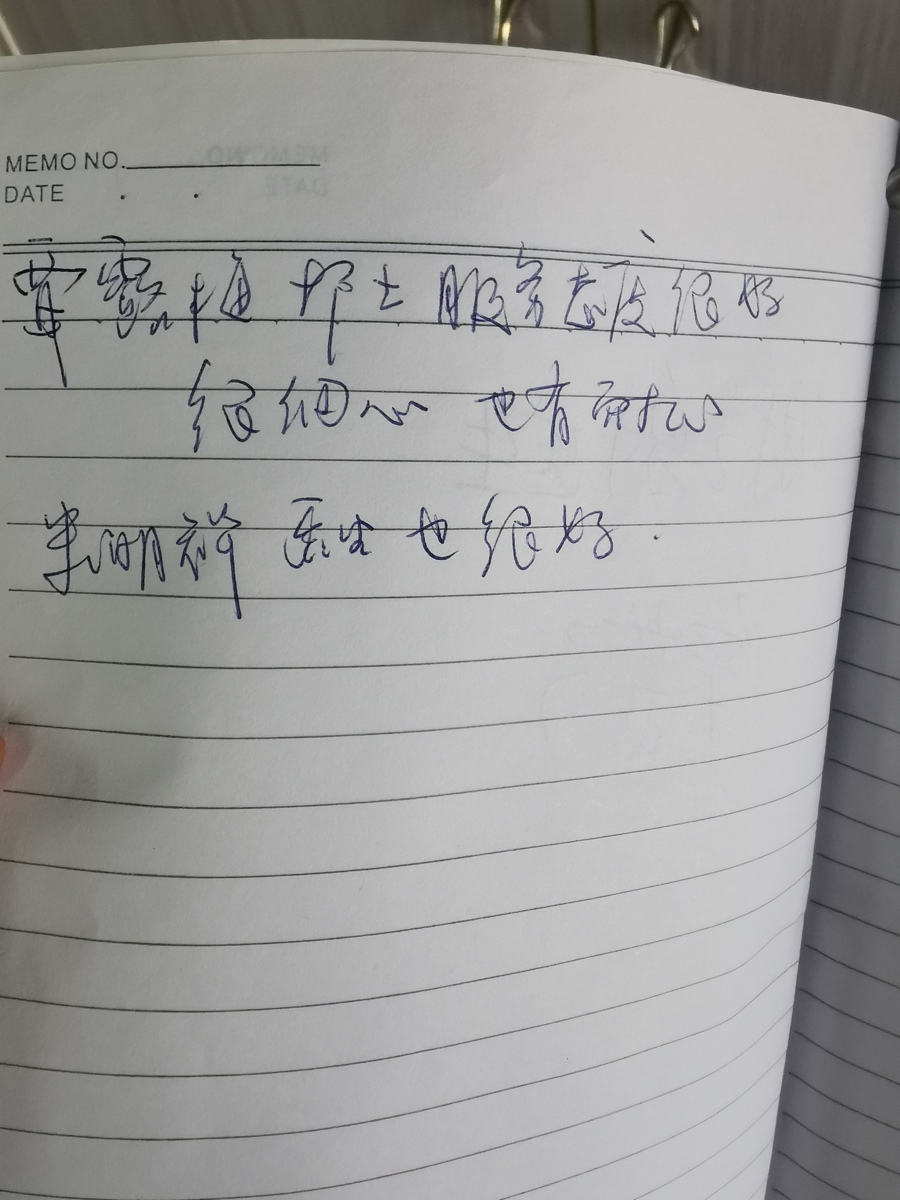 MEMO NO.
DATE . .
护士服务态度很好
很细心 也有耐心
朱明祥 医生也很好.